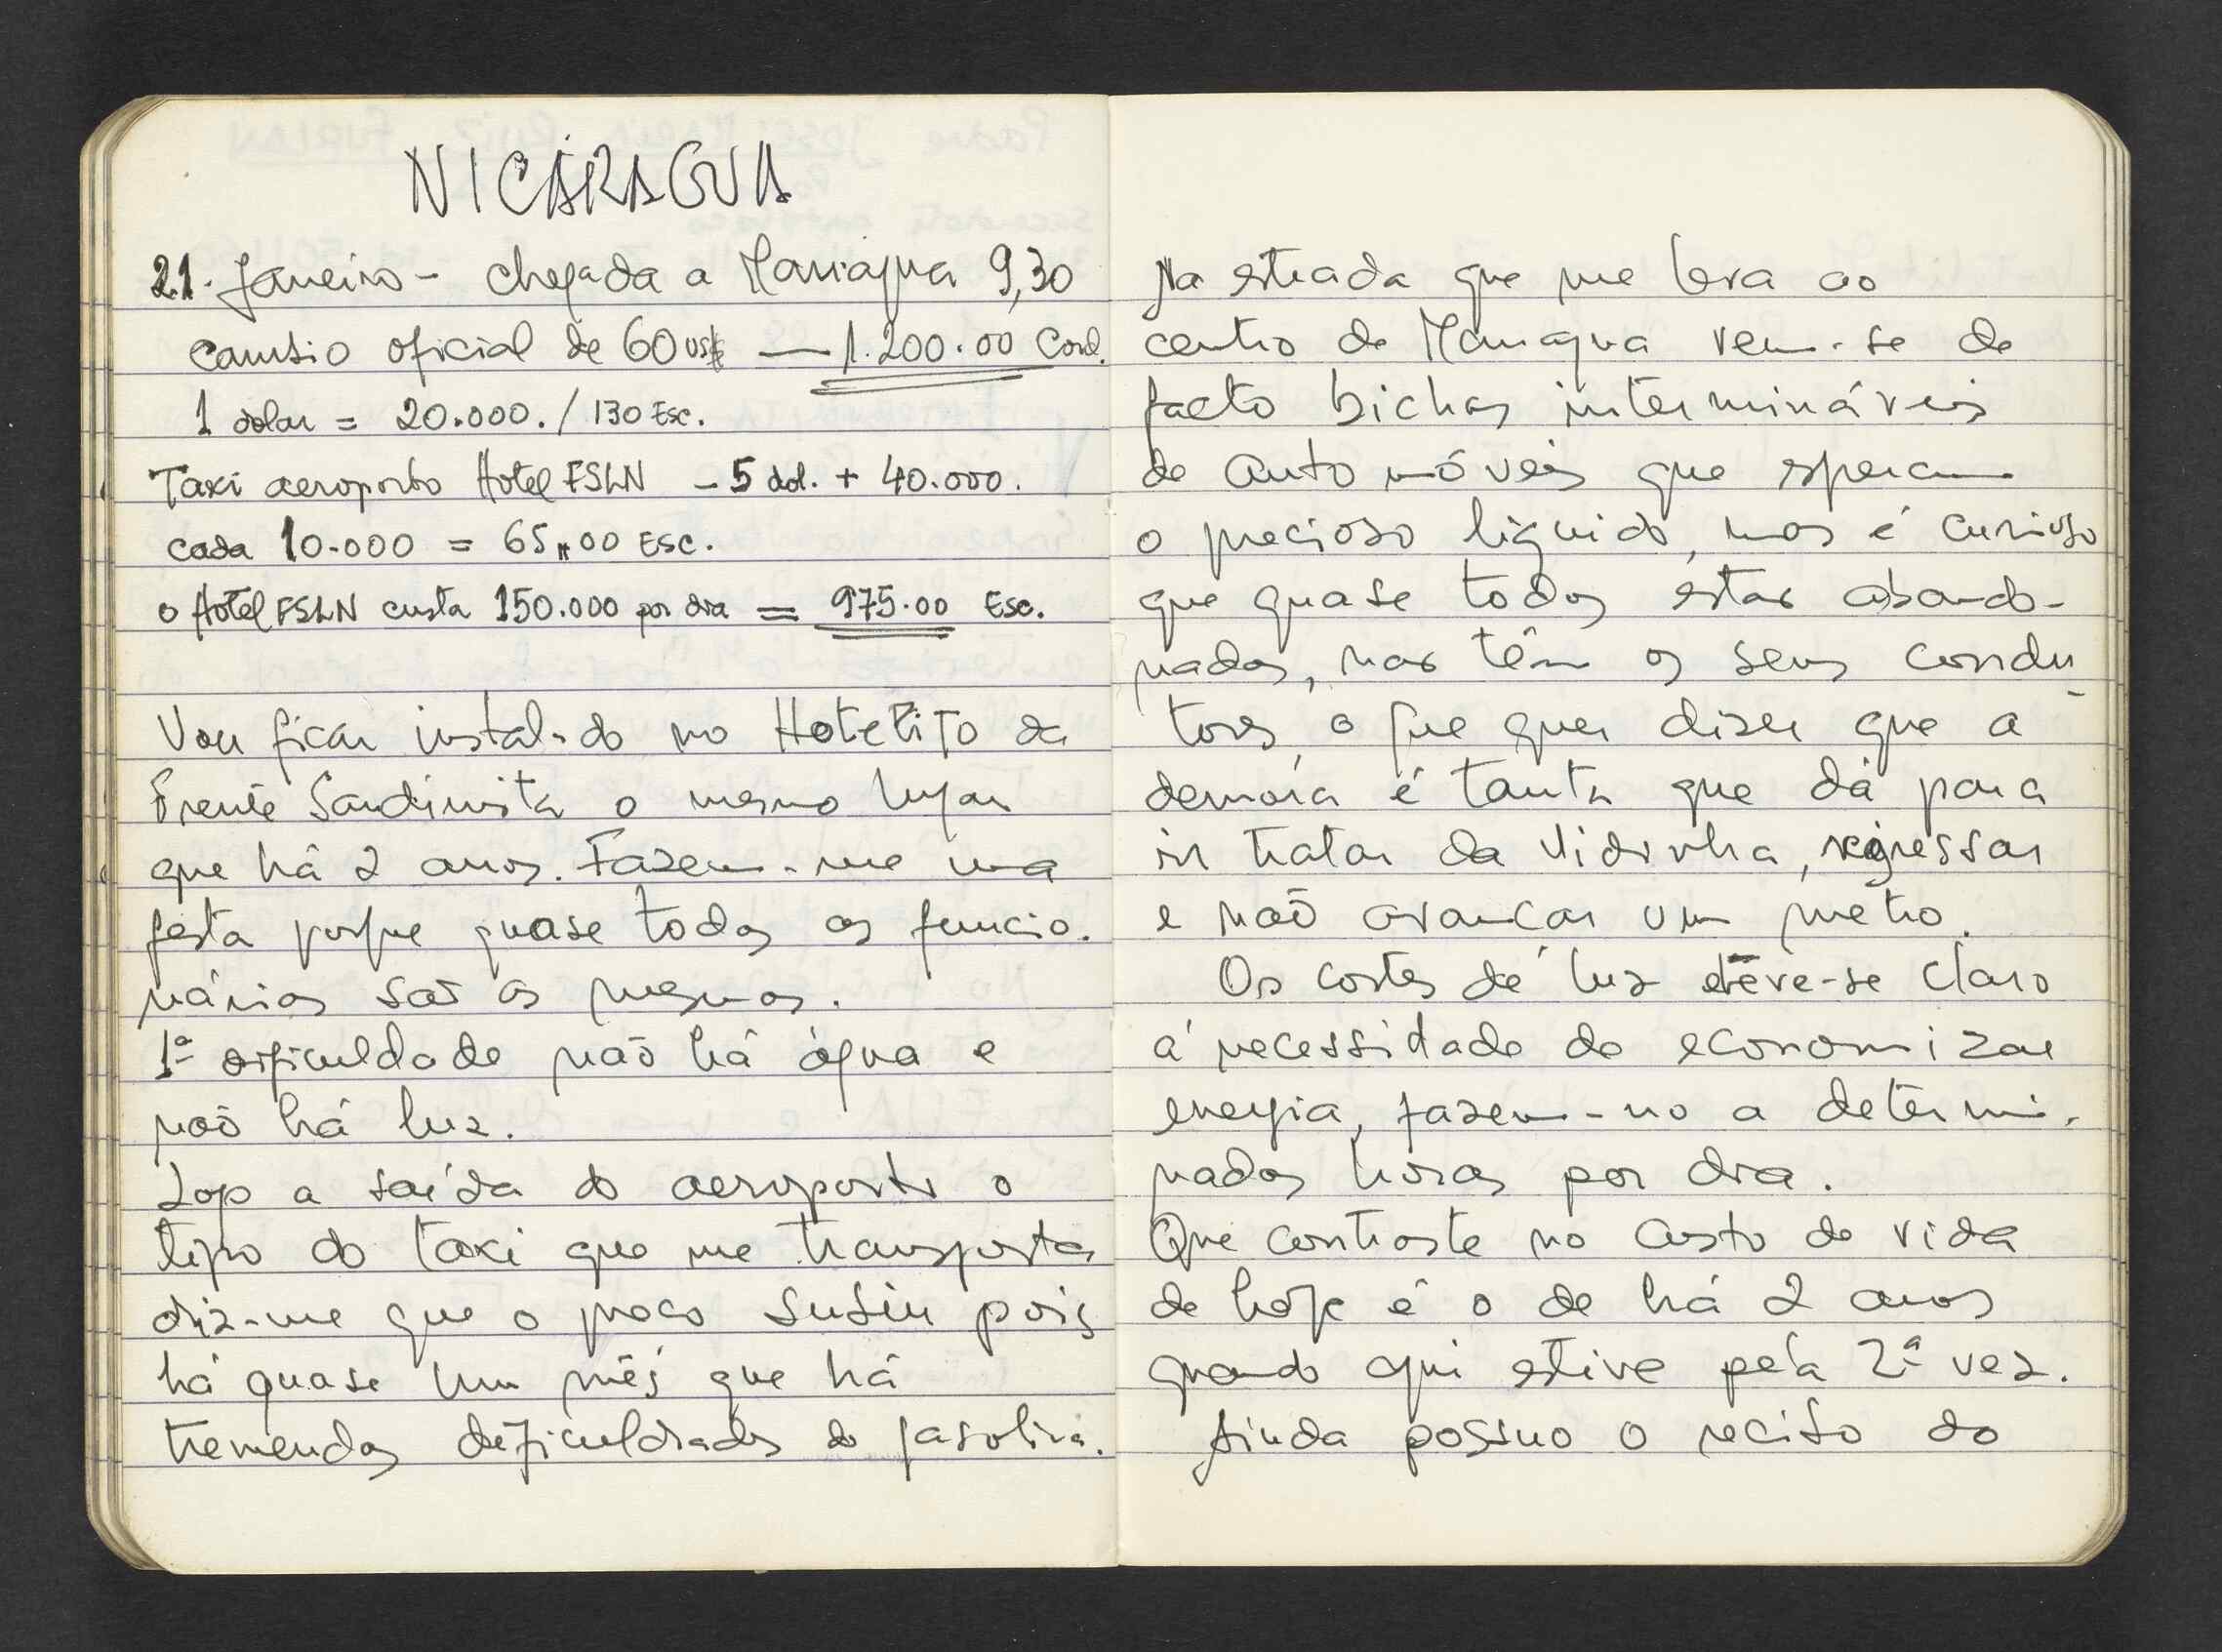 NICARAGUA
21. Janeiro - chegada a Managua 9,30
cambio oficial de 60 us$ — 1.200.00 Cord.
1 dolar = 20.000. / 130 Esc.
Taxi aeroporto Hotel FSLN - 5 dol. + 40.000.
cada 10.000 = 65,,00 Esc.
o Hotel FSLN custa 150.000 por dia = 975.00 Esc.
Vou ficar instalado no Hotelito da
Frente Sandinista o mesmo lugar
que há 2 anos. Fazem-me uma
festa porque quase todos os funcio-
nários são os mesmos.
1ª dificuldade não há água e
não há luz.
Logo a saída do aeroporto o
tipo do taxi que me transporta
diz-me que o preço subiu pois
há quase um mês que há
tremendas dificuldades de gasolina.
Na estrada que me leva ao
centro de Managua vem-se de
facto bichas intermináveis
de automóveis que esperam
o precioso liquido, mas é curioso
que quase todos estão abando-
nados, não têm os seus condu-
tores, o que quer dizer que a
demora é tanta que dá para
ir tratar da vidinha, regressar
e não avançar um metro.
Os cortes de luz deve-se claro
á necessidade de economizar
energia, fazem-no a determi-
nadas horas por dia.
Que contraste no custo de vida
de hoje é o de há 2 anos
quando aqui estive pela 2ª vez.
Ainda possuo o recibo do